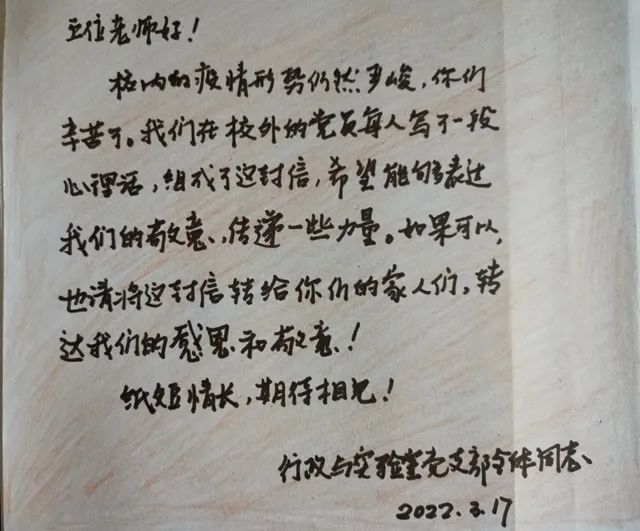 五位老师好！
校内的疫情形势仍然严峻，你们
辛苦了。我们在校外的党员每人写了一段
心理话，组成了这封信，希望能够表达
我们的敬意、传递一些力量。如果可以，
也请将这封信转给你们的家人们，转
达我们的感恩和敬意！
纸短情长，期待相见！
行政与实验室党支部全体同志
2022.3.17